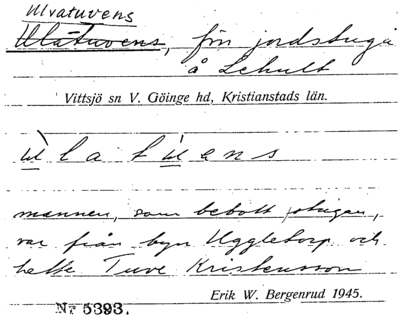 Ulvatuvens
Ulåtuvens, fin jordstuga
å Lehult
Vittsjö sn V. Göinge hd, Kristianstads län.
ù l a t ù e n s
mannen, som bebott stugan,
var från byn Uggletorp och
hette Tuve Kristensson
Erik W. Bergenrud 1945.
Nr 5393.